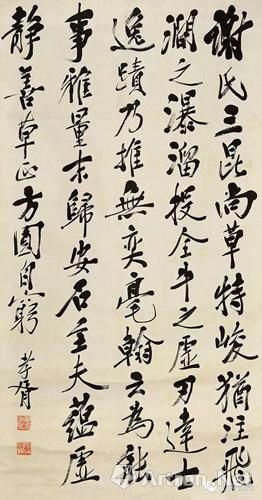 謝氏三昆尚草特峻猶注飛
澗之瀑溜投全牛之虛刃達士
逸蹟乃推無奕毫翰云為能
事雅量末歸安石至夫蘊虛
靜善草正方圓自窮 孝胥